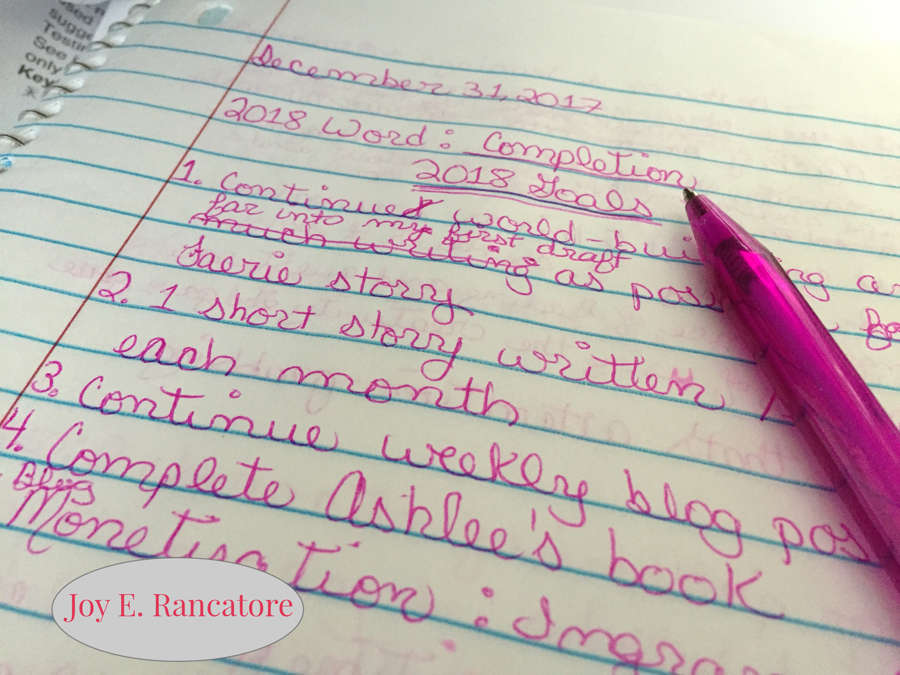 used
sugge
Testin
See
only
Key
December 31, 2017
2018 Word: Completion
2018 Goals
1. Continued world-bui ing a
far into my first draft
much writing as pos
Faerie story
2. 1 short story written
each month
3. Continue weekly blog pos
4. Complete Ashlee's book
Blog
Monetization: Ingram
Joy E. Rancatore